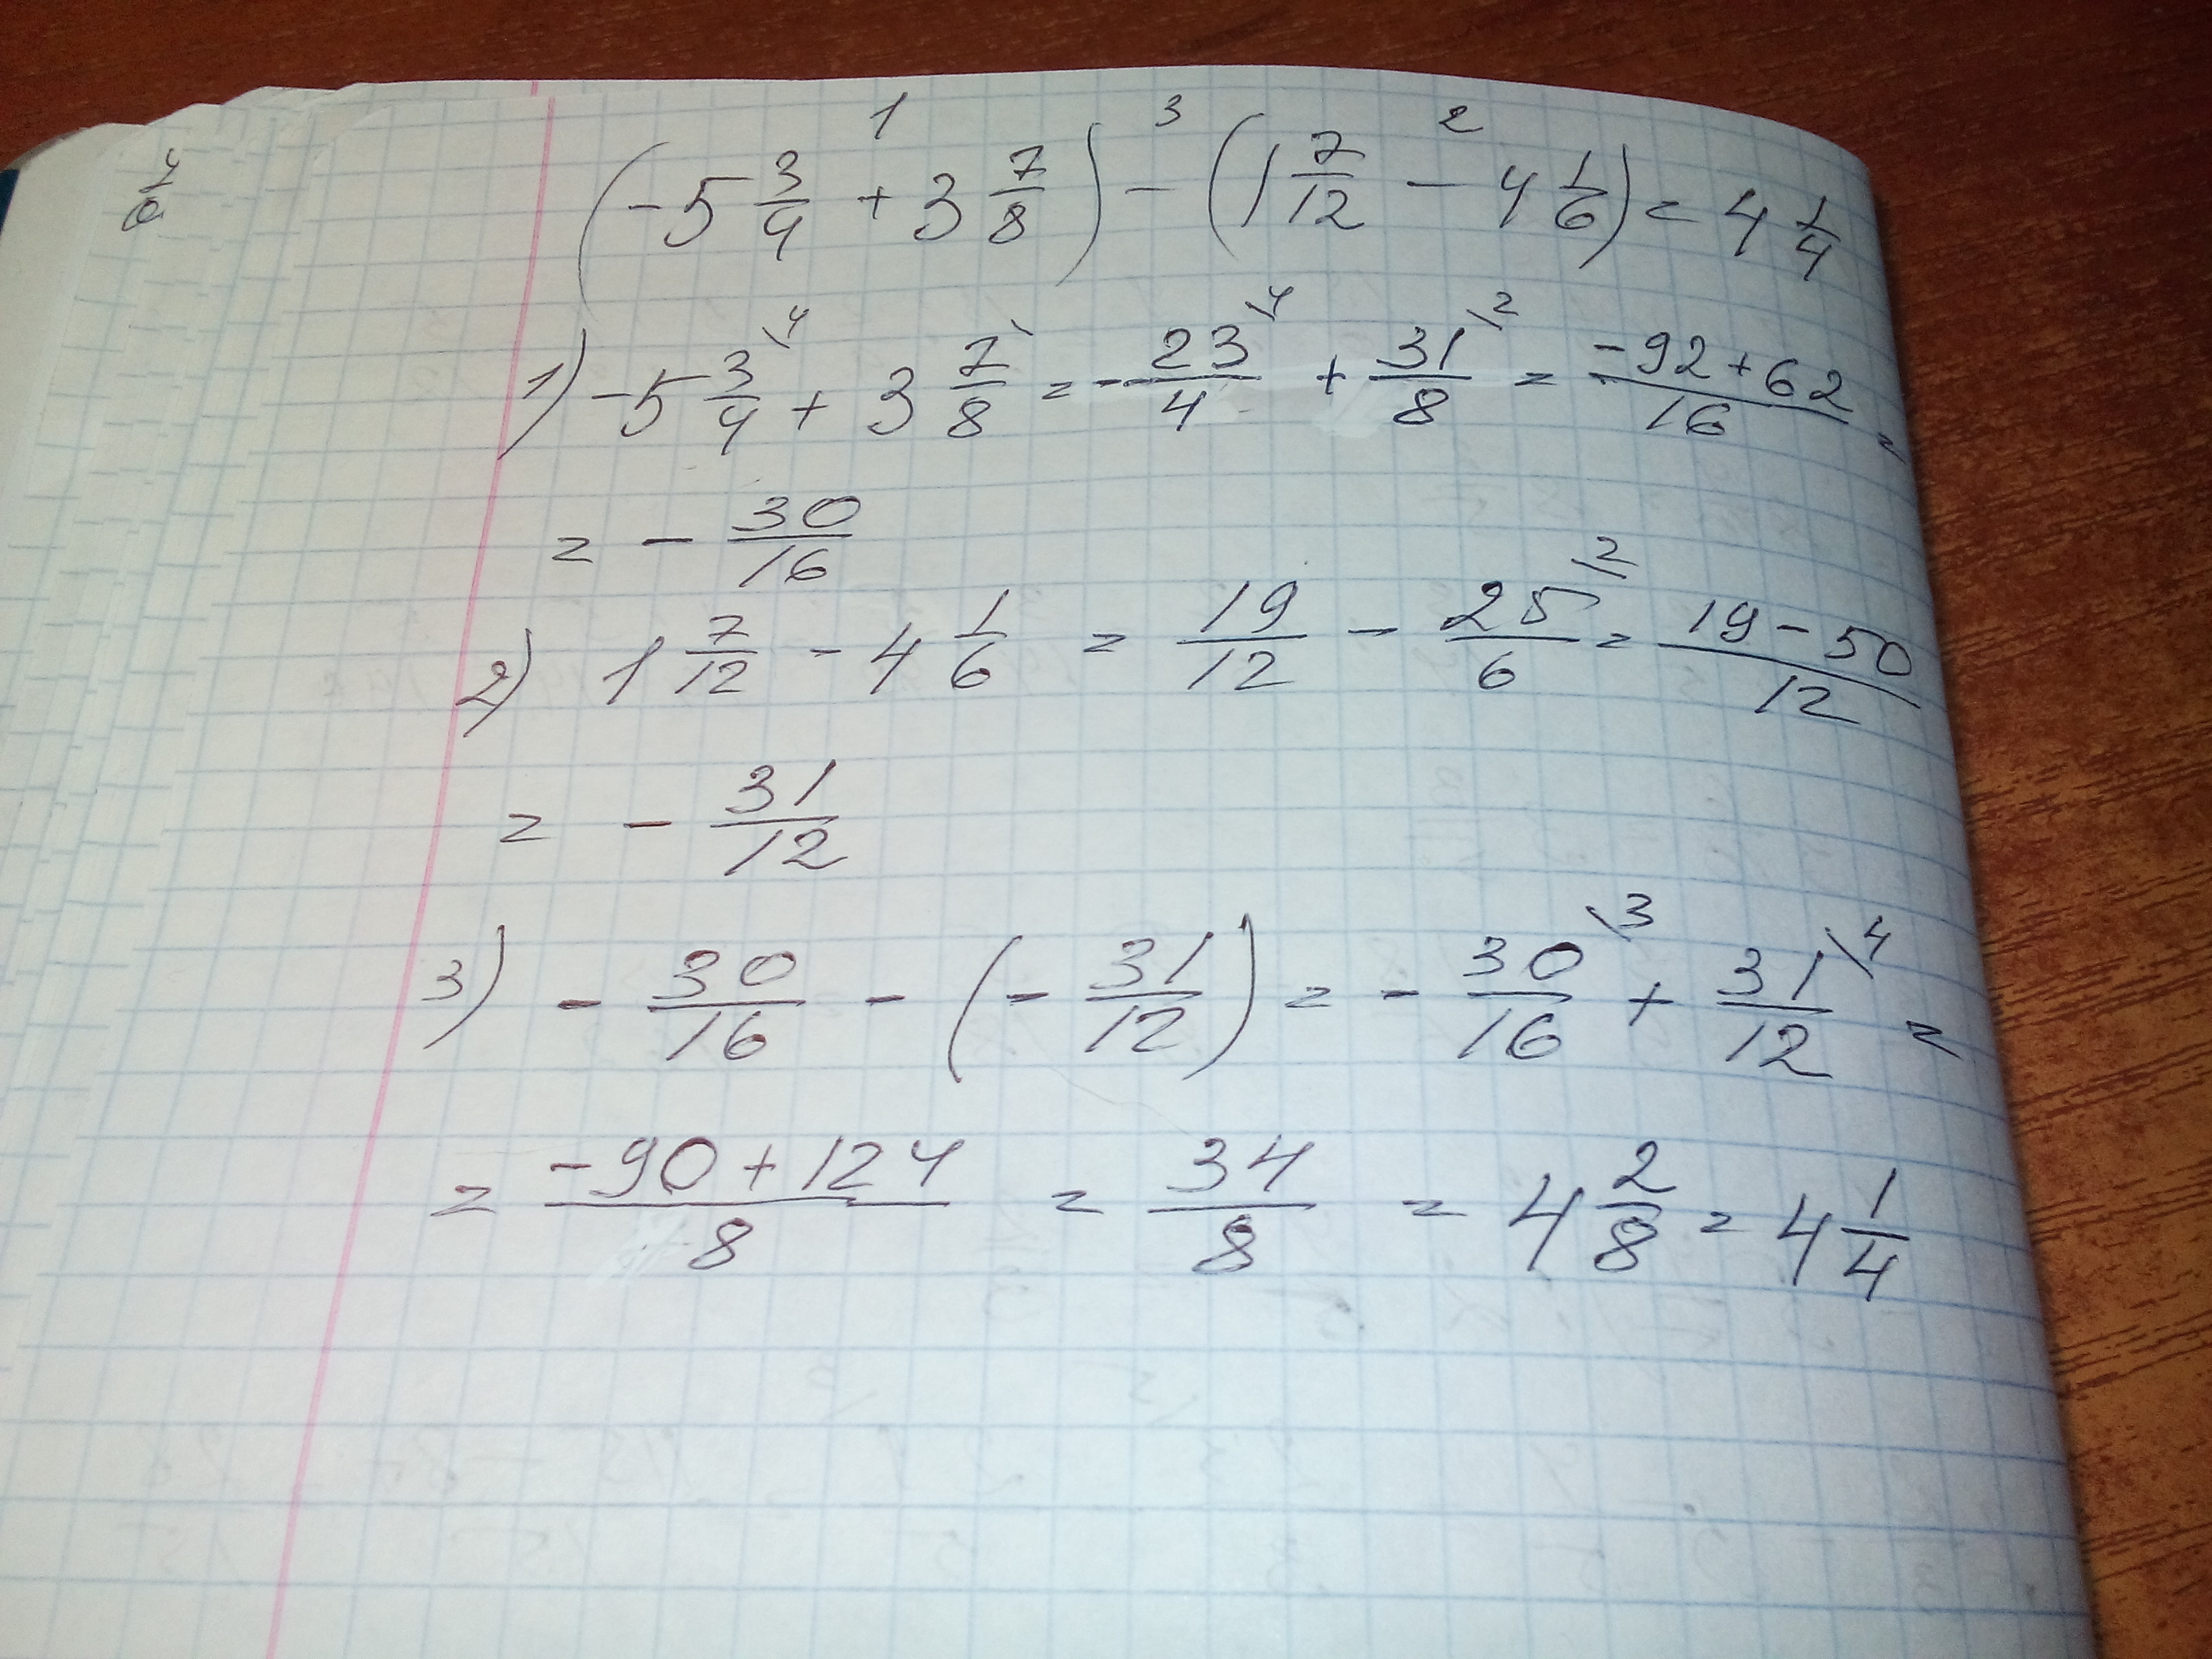 1 3 2
(-5 3/4 + 3 7/8) - (1 7/12 - 4 1/6) = 4 1/4
1) -5 3/4 \4 + 3 7/8 \ = -23/4 \4 + 31/8 \2 = (-92+62)/16 =
= - 30/16
2) 1 7/12 - 4 1/6 = 19/12 - 25/6 \2 = (19-50)/12
= - 31/12
3) - 30/16 - (- 31/12) = - 30/16 \3 + 31/12 \4 =
= (-90+124)/8 = 34/8 = 4 2/8 = 4 1/4